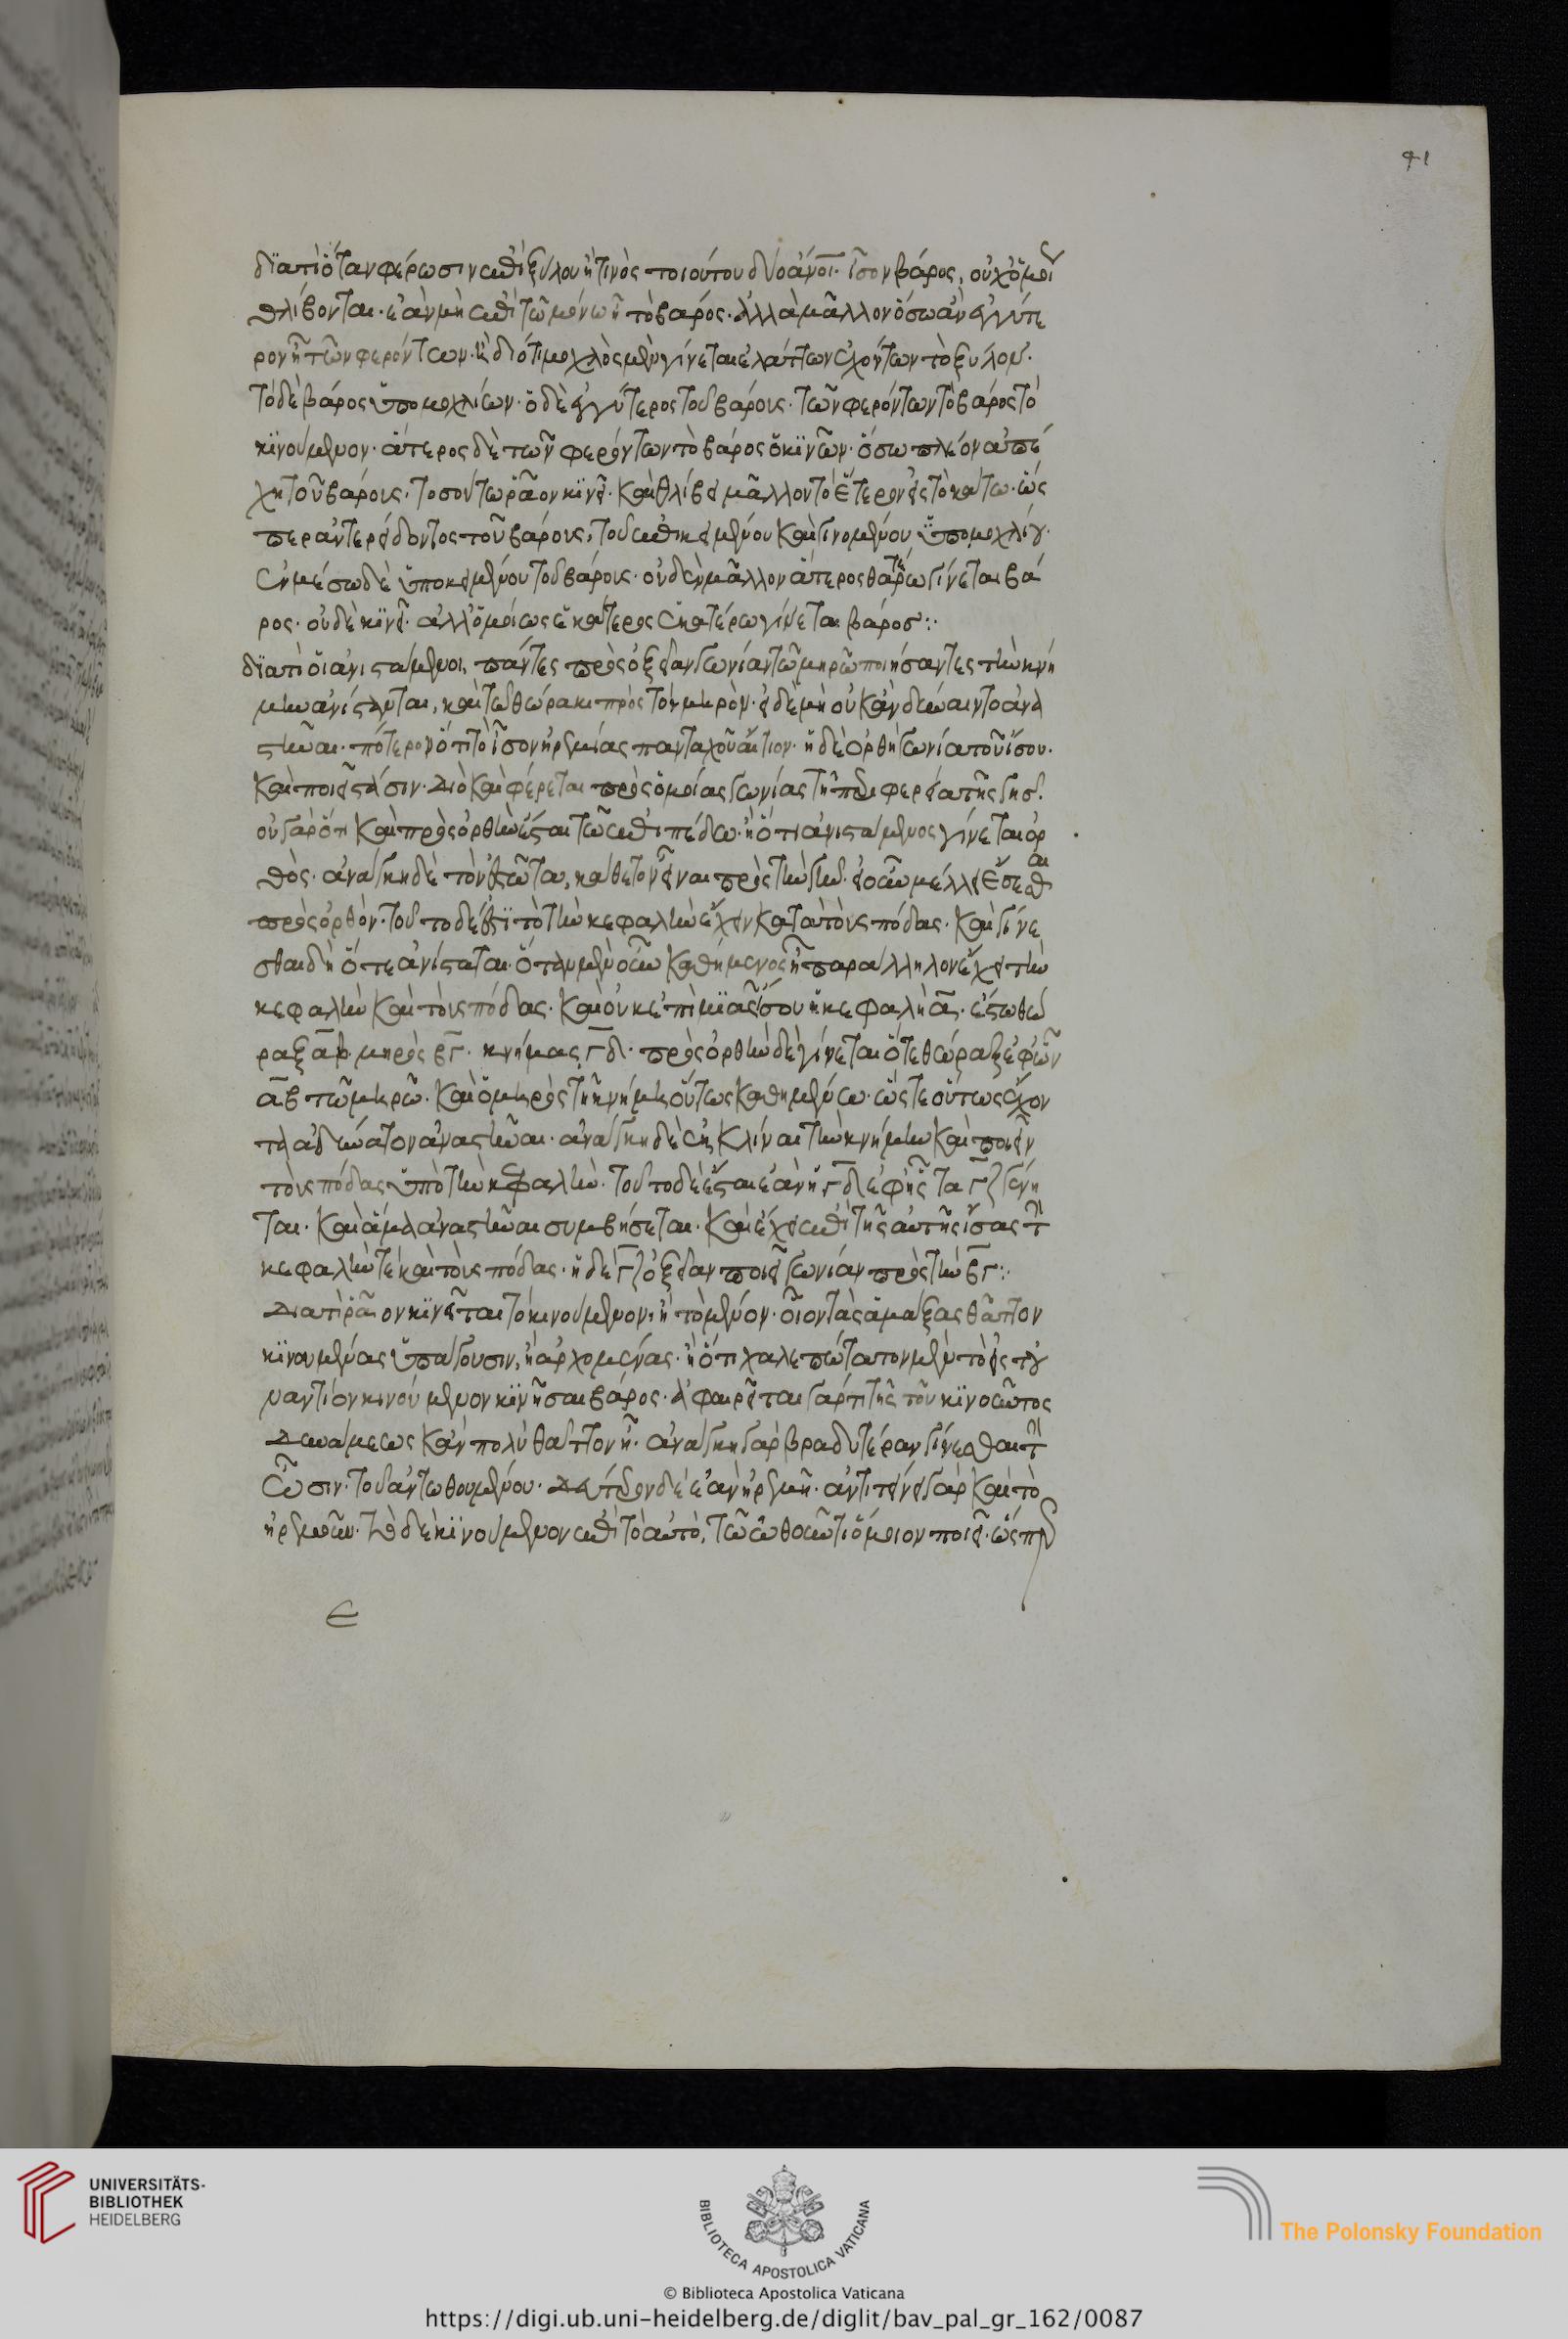 41
διατί ὅταν φέρωσιν ἐπὶ ξύλου ἤ τινος τοιούτου δύο ἄνοι. ἴσον βάρος, οὐχ ὁμοί
θλίβονται. ἐὰν μὴ ἐπὶ τῶ μέσω ἦ τὸ βάρος. ἀλλὰ μᾶλλον ὅσω ἂν ἐγγύτε
ρον ἦ τῶν φερόντων. ἢ διότι μοχλὸς μὲν γίνεται ἐλάττων ἐχόντων τὸ ξύλον.
τὸ δὲ βάρος ὑπομόχλιων. ὁ δὲ ἐγγύτερος τοῦ βάρους. τῶν φερόντων τὸ βάρος τὸ
κινούμενον. ἅτερος δὲ τῶν φερόντων τὸ βάρος ὁ κινῶν. ὅσω πλέον ἀπέ
χη τοῦ βάρους. τοσούτω ῥᾷον κινεῖ. καὶ θλίβει μᾶλλον τὸ ἕτερον εἰς τὸ κάτω. ὥς
περ ἀντερείδοντος τοῦ βάρους, τοῦ ἐπικειμένου καὶ γινομένου ὑπομοχλίου.
ἐν μέσω δὲ ὑποκειμένου τοῦ βάρους. οὐδὲν μᾶλλον ἅτερος θατέρω γίνεται βά
ρος. οὐδὲ κινεῖ. ἀλλ' ὁμοίως ἑκάτερος ἑκατέρω γίνεται βάρος :·
διατί οἱ ἀνιστάμενοι, πάντες πρὸς ὀξεῖαν γωνίαν τῶ μηρῶ ποιήσαντες τὴν κνή
μην ἀνίστανται, καὶ τῶ θώρακι πρὸς τὸν μηρόν. εἰ δὲ μὴ οὐκ ἂν δύναιντο ἀνα
στῆναι. πότερον ὅτι τὸ ἴσον ἠρεμίας πανταχοῦ αἴτιον. ἡ δὲ ὀρθὴ γωνία τοῦ ἴσου.
καὶ ποιεῖ στάσιν. διὸ καὶ φέρεται πρὸς ὁμοίας γωνίας τῆ περιφερεία τῆς γῆς.
οὐ γὰρ ὅτι καὶ πρὸς ὀρθὴν ἔσται τῶ ἐπιπέδω. ἢ ὅτι ἀνιστάμενος γίνεται ὀρ
θός. ἀνάγκη δὲ τὸν ἑστῶτα, κάθετον εἶναι πρὸς τὴν γῆν. εἰ οὖν μέλλει ἔσεσθαι
πρὸς ὀρθόν. τοῦτο δέ ἐστι τὸ τὴν κεφαλὴν ἔχειν κατὰ τοὺς πόδας. καὶ γίνε
σθαι δὴ ὅτε ἀνίσταται. ὅταν μὲν οὖν καθήμενος ἦ παράλληλον ἔχει τὴν
κεφαλὴν καὶ τοὺς πόδας. καὶ οὐκ ἐπὶ μιᾶς ἴσου ἡ κεφαλὴ α. ἔστω θώ
ραξ αβ. μηρὸς βγ. κνήμας γδ. πρὸς ὀρθὴν δὲ γίνεται ὅ τε θώραξ ἐφ' ὧν
αβ τῶ μηρῶ. καὶ ὁ μηρὸς τῆ κνήμη οὕτως καθημένω. ὥστε οὕτως ἔχον
τα ἀδύνατον ἀναστῆναι. ἀνάγκη δὲ ἐγκλίναι τὴν κνήμην καὶ ποιεῖν
τοὺς πόδας ὑπὸ τὴν κεφαλήν. τοῦτο δὲ ἔσται ἐὰν ἡ γδ ἐφ' ἧς τα γζ γένη
ται. καὶ ἅμα ἀναστῆναι συμβήσεται. καὶ ἔχει ἐπὶ τῆς αὐτῆς ἴσας τὴν
κεφαλήν τε καὶ τοὺς πόδας. ἡ δὲ γζ ὀξεῖαν ποιεῖ γωνίαν πρὸς τὴν βγ :·
διατί ῥᾷον κινεῖται τὸ κινούμενον. ἢ τὸ μένον. οἷον τὰς ἁμάξας θᾶττον
κινουμένας ὑπάγουσιν, ἢ ἀρχομένας. ἢ ὅτι χαλεπώτατον μὲν τὸ εἰς του
ναντίον κινούμενον κινῆσαι βάρος. ἀφαιρεῖται γάρ τι τῆς τοῦ κινοῦντος
δυνάμεως κἂν πολὺ θᾶττον ἦ. ἀνάγκη γὰρ βραδυτέραν γίνεσθαι τὴν
ὦσιν. τοῦ ἀντωθουμένου. δεύτερον δὲ ἐὰν ἠρεμῆ. ἀντιτείνει γὰρ καὶ τὸ
ἠρεμοῦν. τὸ δὲ κινούμενον ἐπὶ τὸ αὐτὸ, τῶ ὠθοῦντι ὅμοιον ποιεῖ. ὥσπερ
ε
UNIVERSITÄTS-
BIBLIOTHEK
HEIDELBERG
BIBLIOTECA APOSTOLICA VATICANA
© Biblioteca Apostolica Vaticana
The Polonsky Foundation
https://digi.ub.uni-heidelberg.de/diglit/bav_pal_gr_162/0087